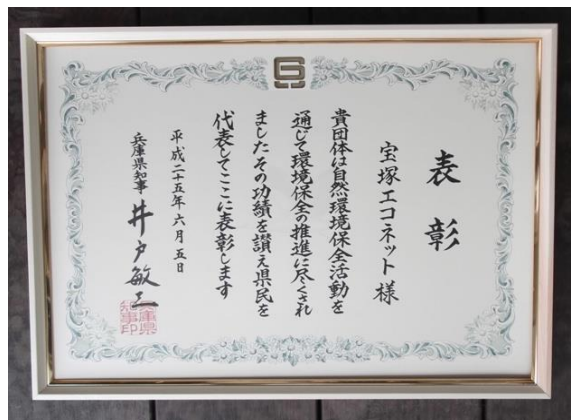 表彰
宝塚エコネット様
貴団体は自然環境保全活動を
通じて環境保全の推進に尽くされ
ましたその功績を讃え県民を
代表してここに表彰します
平成二十五年六月五日
兵庫県知事 井戸敏三
兵庫県
知事印